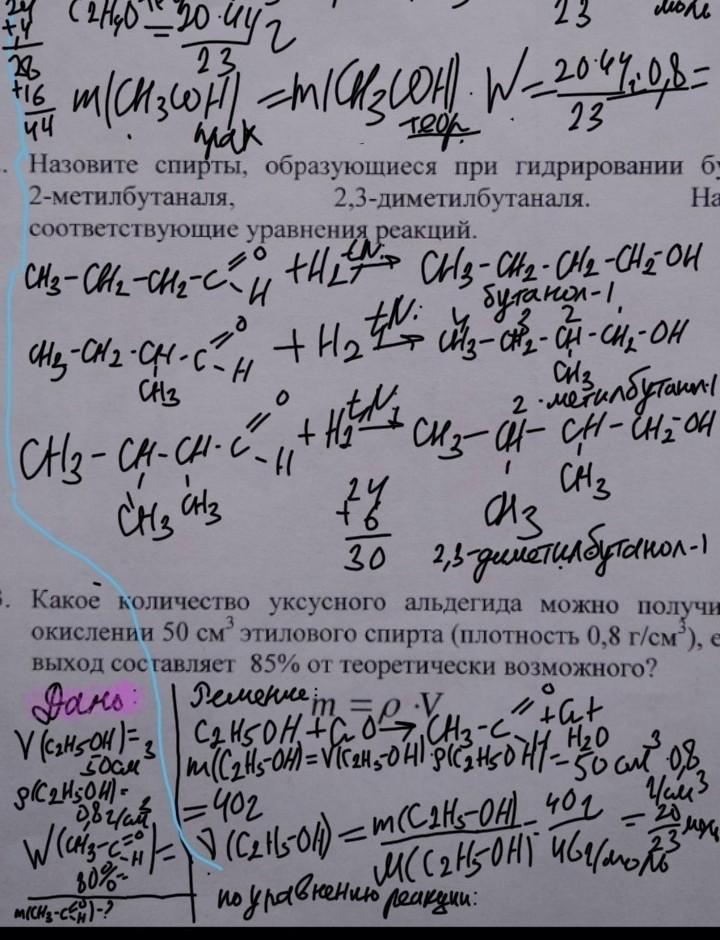 24
+4
28
+16
44
C2H4O = 20·44 г
23
23 моль
m(CH3COH) прак = m(CH3COH) теор. · W = 20·44·0,8 =
23
Назовите спирты, образующиеся при гидрировании бу
2-метилбутаналя, 2,3-диметилбутаналя. На
соответствующие уравнения реакций.
CH3-CH2-CH2-C =O -H + H2 t,Ni → CH3-CH2-CH2-CH2-OH
бутанол-1
CH3-CH2-CH-C =O -H + H2 t,Ni → CH3-CH2-CH-CH2-OH
4 3 2 1
CH3 CH3
2-метилбутанол-1
CH3-CH-CH-C =O -H + H2 t,Ni → CH3-CH-CH-CH2-OH
CH3 CH3 CH3 CH3
24
+6
30
2,3-диметилбутанол-1
3. Какое количество уксусного альдегида можно получи
окислении 50 см³ этилового спирта (плотность 0,8 г/см³), е
выход составляет 85% от теоретически возможного?
Дано:
V(C2H5OH)=
50см³
ρ(C2H5OH)=
0,8 г/см³
W(CH3-C=O-H)=
80%
m(CH3-C=O-H)-?
Решение: m = ρ · V
C2H5OH + CuO → CH3-C =O -H + Cu + H2O
m(C2H5-OH)=V(C2H5-OH)·ρ(C2H5OH)=50 см³·0,8 г/см³
= 40г
ν(C2H5-OH) = m(C2H5-OH) = 40г = 20
M(C2H5-OH) 46г/моль 23
по уравнению реакции: